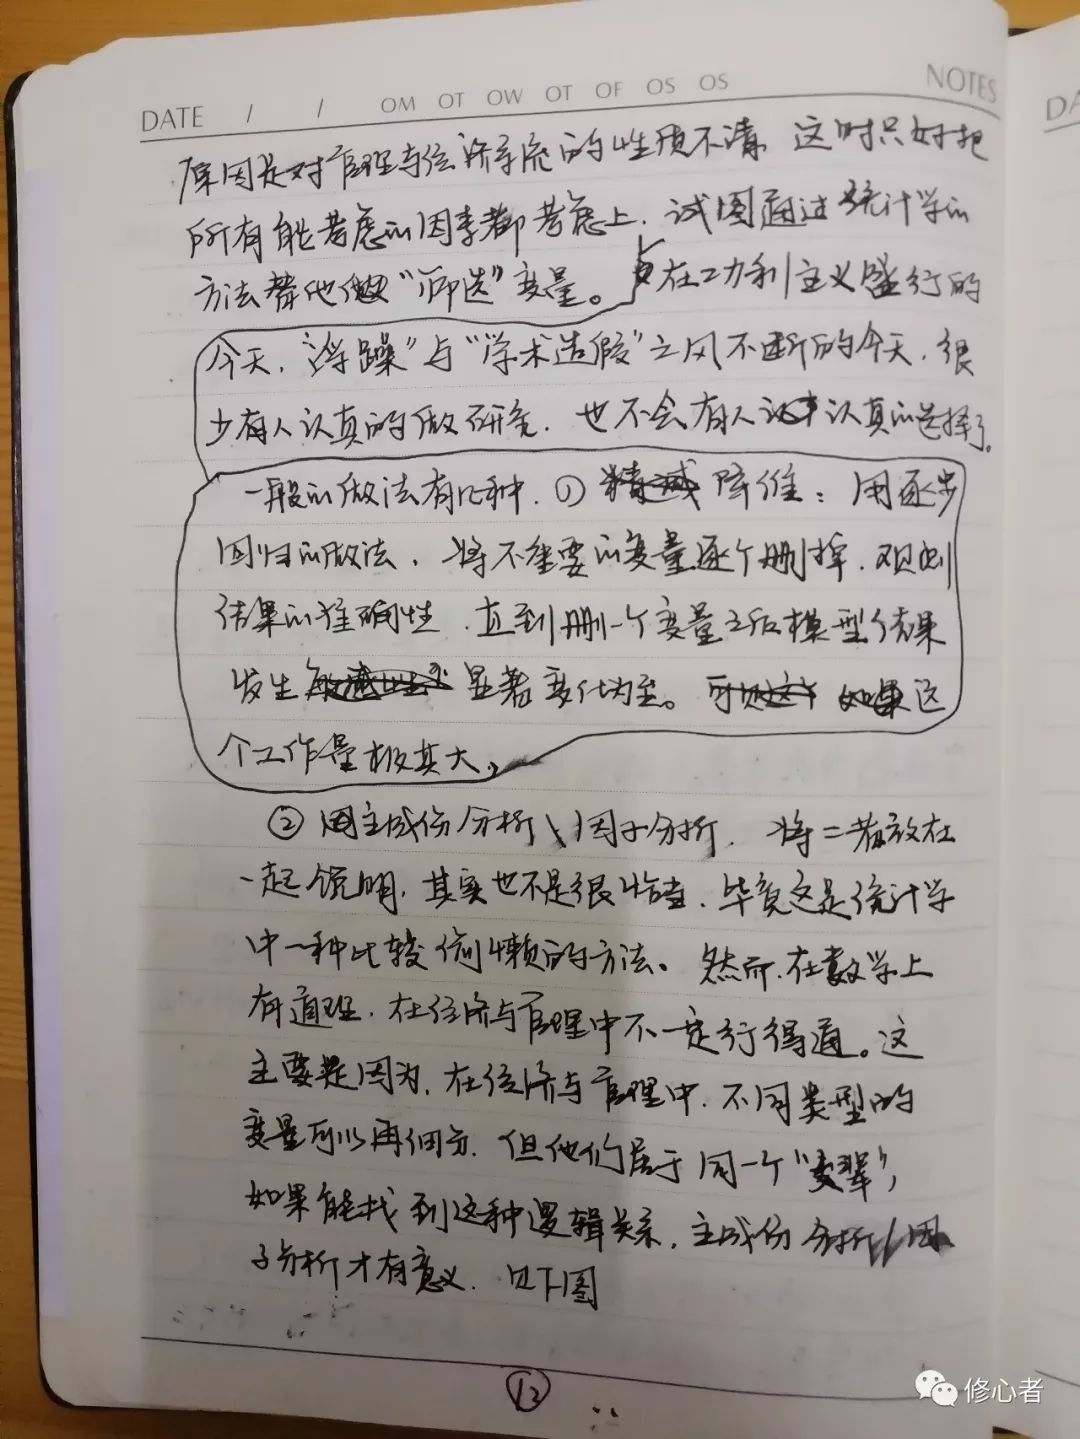 DATE / / OM OT OW OT OF OS OS NOTES
DA
原因是对管理与经济系统的性质不清,这时只好把
所有能考虑的因素都考虑上,试图通过统计学的
方法帮他做“筛选”变量。在功利主义盛行的
今天,“浮躁”与“学术造假”之风不断的今天,很
少有人认真的做研究,也不会有人认真的选择了。
一般的做法有几种,① 降维:用逐步
回归的做法,将不重要的变量逐个删掉,观测
结果的准确性,直到删一个变量之后模型结果
发生显著变化为至。这
个工作量极其大。
② 用主成份分析\因子分析,将二者放在
一起说明,其实也不是很恰当,毕竟这是统计学
中一种比较偷懒的方法。然而,在数学上
有道理,在经济与管理中不一定行得通。这
主要是因为,在经济与管理中,不同类型的
变量可以再细分,但他们属于同一个“”,
如果能找到这种逻辑关系,主成份分析/因
子分析才有意义,见下图
12
修心者